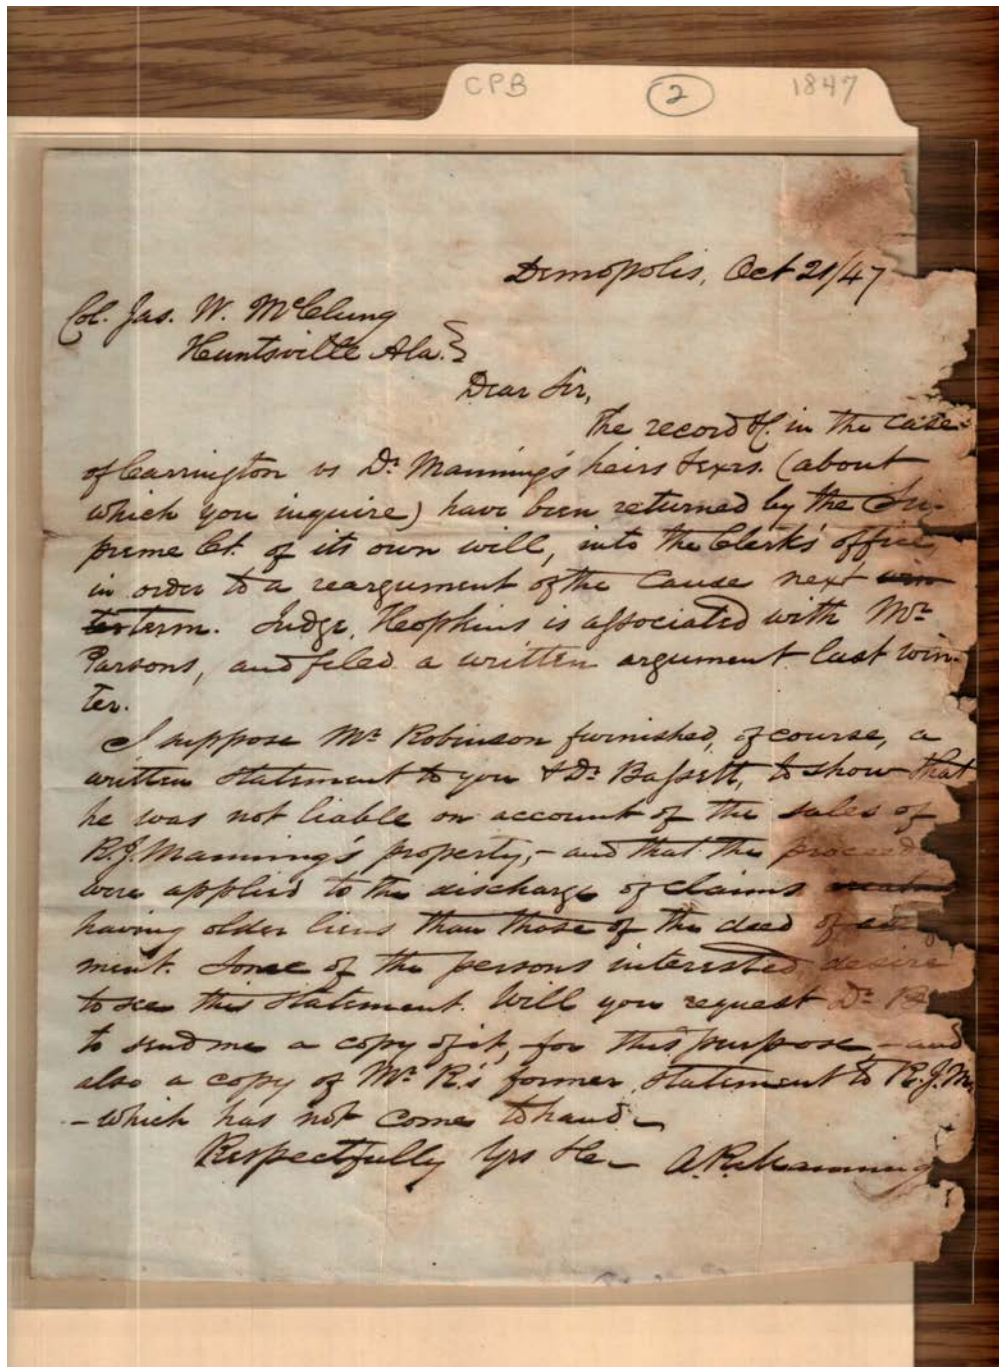 CPB 2 1847
Demopolis, Oct 21/47
Col. Jas. W. McClung
Huntsville Ala.}
Dear Sir,
The record &c. in the case
of Carrington vs Dr. Manning's heirs & exrs. (about
which you inquire) have been returned by the Su-
preme Ct. of its own will, into the Clerk's office
in order to a reargument of the cause next win
ter term. Judge Hopkins is associated with Mr.
Parsons, and filed a written argument last win-
ter.
I suppose Mr. Robinson furnished, of course, a
written statement to you & Dr. Bassett, to show that
he was not liable on account of the sales of
R.J. Manning's property,- and that the proceeds
were applied to the discharge of claims
having older liens than those of the deed of
ment. Some of the persons interested, desire
to see this statement. Will you request Dr. B
to send me a copy of it, for this purpose - and
also a copy of Mr. R.'s former statement to R.J.M.
- which has not come to hand -
Respectfully Yrs &c - A.R. Manning